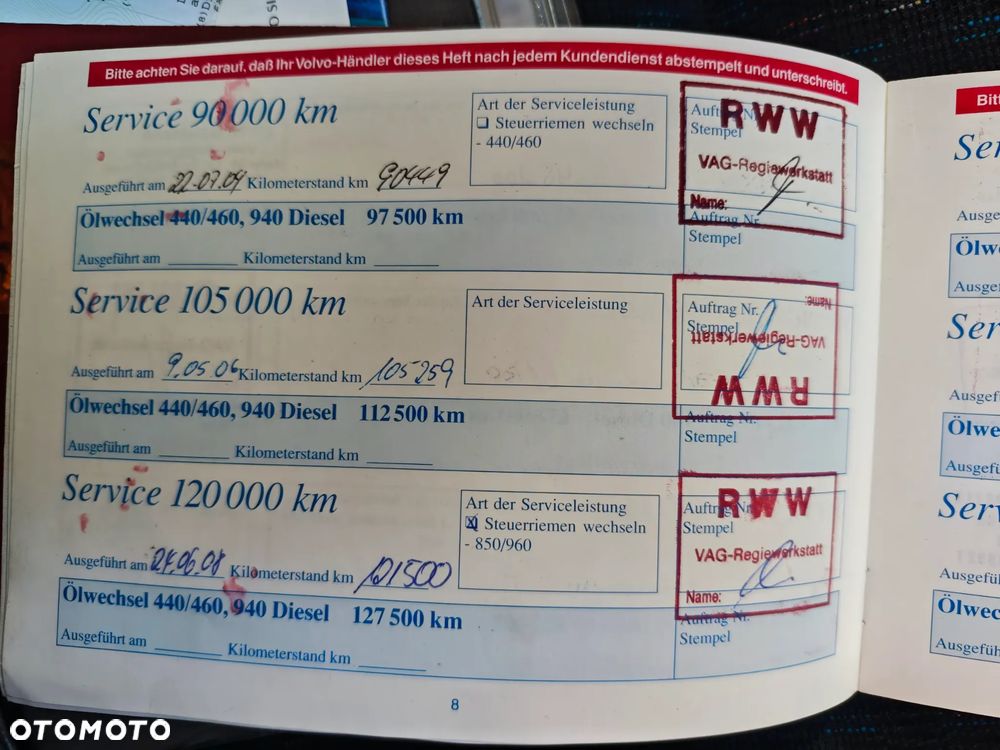 Bitte achten Sie darauf, daß Ihr Volvo-Händler dieses Heft nach jedem Kundendienst abstempelt und unterschreibt.
Service 90 000 km
Art der Serviceleistung
☐ Steuerriemen wechseln
- 440/460
Auftrag Nr.
Stempel
RWW
VAG-Regiewerkstatt
Name:
Ausgeführt am 22.07.04 Kilometerstand km 90449
Ölwechsel 440/460, 940 Diesel 97 500 km
Auftrag Nr.
Stempel
Ausgeführt am ________ Kilometerstand km ________
Service 105 000 km
Art der Serviceleistung
Auftrag Nr.
Stempel
Name:
VAG-Regiewerkstatt
RWW
Ausgeführt am 9.05.06 Kilometerstand km 105259
Ölwechsel 440/460, 940 Diesel 112 500 km
Auftrag Nr.
Stempel
Ausgeführt am ________ Kilometerstand km ________
Service 120 000 km
Art der Serviceleistung
☒ Steuerriemen wechseln
- 850/960
Auftrag Nr.
Stempel
RWW
VAG-Regiewerkstatt
Name:
Ausgeführt am 24.06.08 Kilometerstand km 121500
Ölwechsel 440/460, 940 Diesel 127 500 km
Auftrag Nr.
Stempel
Ausgeführt am ________ Kilometerstand km ________
8
Bitt
Ser
Ausge
Ölw
Ausgef
Ser
Ausgef
Ölwe
Ausgefü
Serv
Ausgefü
Ölwec
Ausgefüh
OTOMOTO